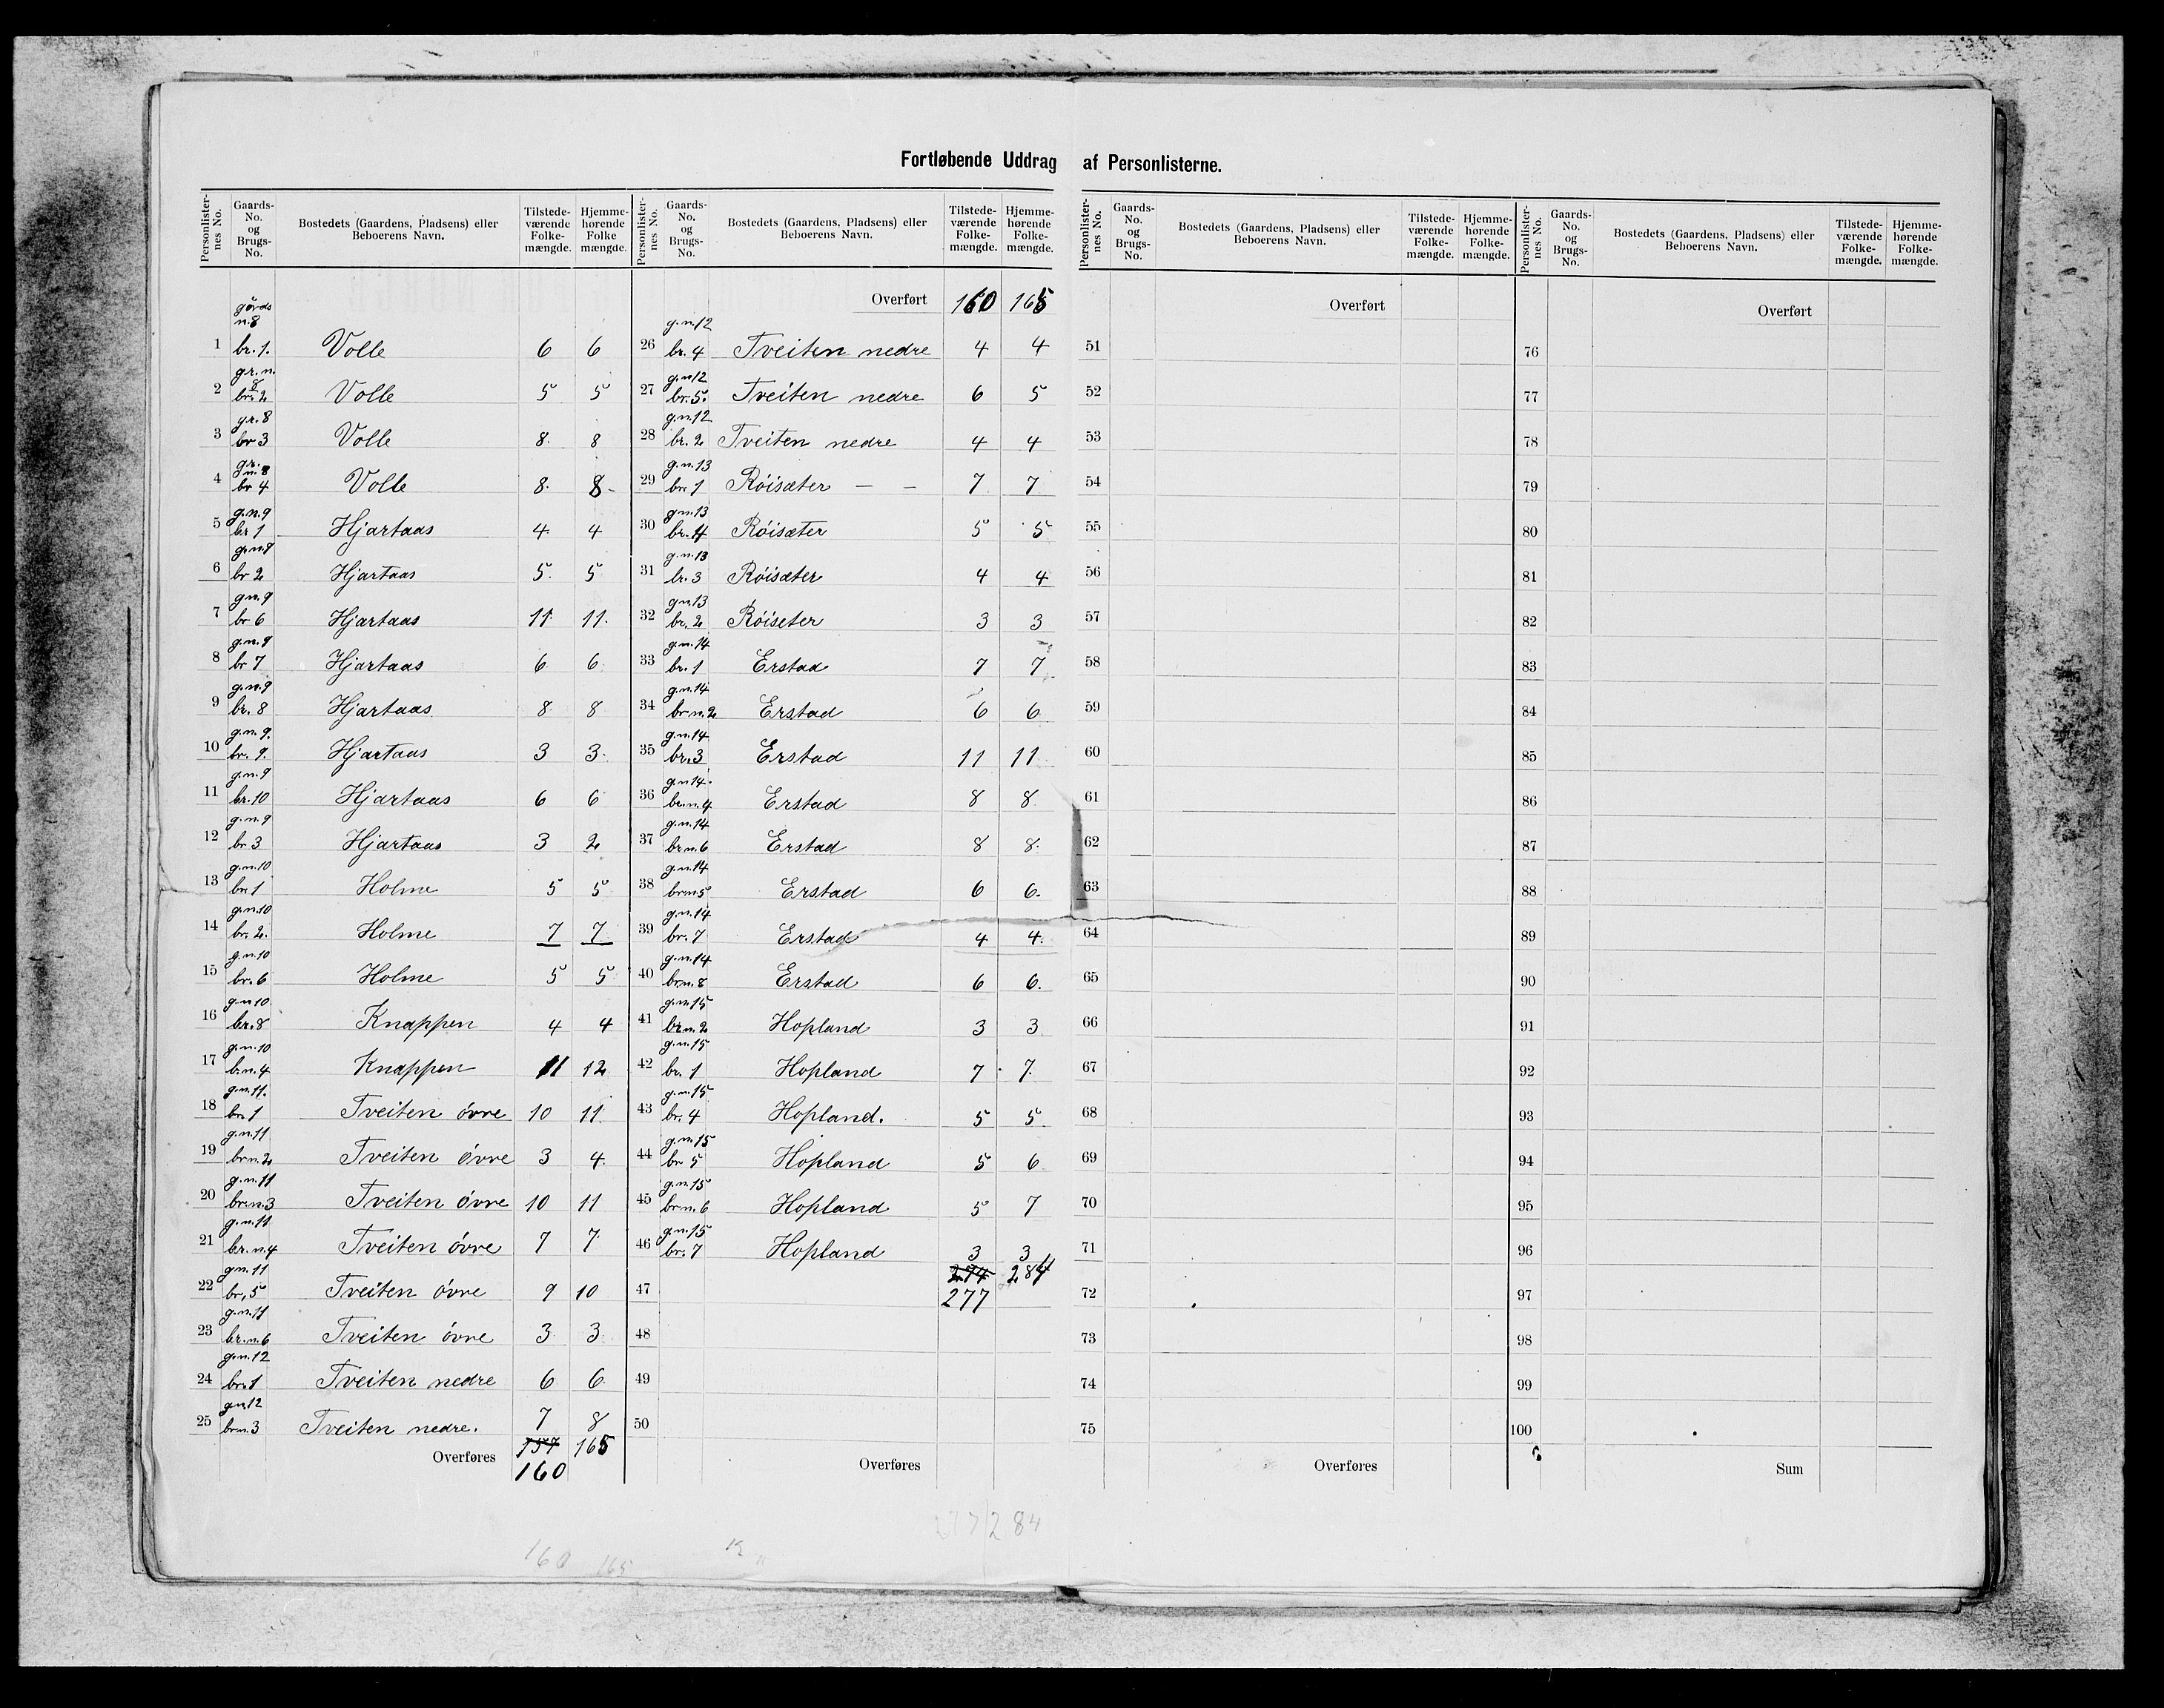 Fortløbende Uddrag af Personlisterne.
Personlister-nes No. | Gaards-No. og Brugs-No. | Bostedets (Gaardens, Pladsens) eller Beboerens Navn. | Tilstede-værende Folke-mængde. | Hjemme-hørende Folke mængde.
1 | gårds n. 8 br. 1. | Volle | 6 | 6
2 | gr. n. 8 br. 2 | Volle | 5 | 5
3 | gr. 8 br 3 | Volle | 8. | 8
4 | gr. n. 8 br 4 | Volle | 8. | 8-
5 | g.n. 9 br 1 | Hjartaas | 4. | 4
6 | g.n. 9 br 2 | Hjartaas | 5. | 5
7 | g.n. 9 br 6 | Hjartaas | 11. | 11.
8 | g.n. 9 br 7 | Hjartaas | 6. | 6.
9 | g.n. 9 br. 8 | Hjartaas | 8 | 8
10 | g.n. 9. br. 9. | Hjartaas | 3 | 3.
11 | g.n. 9 br. 10 | Hjartaas | 6 | 6
12 | g.n. 9 br. 3 | Hjartaas | 3 | 2
13 | g.n. 10 br. 1 | Holme | 5 | 5
14 | g.n. 10 br. 2. | Holme | 7 | 7
15 | g.n. 10 br. 6 | Holme | 5 | 5
16 | g.n 10. br. 8 | Knappen | 4 | 4
17 | g.n. 10 b.n. 4 | Knappen | 11 | 12
18 | g.n. 11. br. 1 | Tveiten óvre | 10 | 11.
19 | g.n. 11 brn. 2 | Tveiten óvre | 3 | 4.
20 | g.n. 11 br.n. 3 | Tveiten óvre | 10 | 11
21 | g.n. 11 br. n. 4 | Tveiten óvre | 7 | 7
22 | g.n. 11 br, 5 | Tveiten óvre | 9 | 10
23 | g.n. 11 br. n. 6 | Tveiten óvre | 3 | 3.
24 | g.n. 12 br. 1 | Tveiten nedre | 6 | 6
25 | g.n. 12 brn. 3 | Tveiten nedre. | 7 | 8
Overføres | 157 | 165
160
Personlister-nes No. | Gaards-No. og Brugs-No. | Bostedets (Gaardens, Pladsens) eller Beboerens Navn. | Tilstede-værende Folke-mængde. | Hjemme-hørende Folke-mængde.
Overført | 160 | 165
26 | g.n. 12 br. 4 | Tveiten nedre | 4 | 4
27 | g.n 12 br. 5. | Tveiten nedre | 6 | 5
28 | g.n. 12 br. 2 | Tveiten nedre | 4 | 4
29 | g.n. 13 br. 1 | Róisæter — — | 7 | 7
30 | g.n. 13 br. 4 | Róisæter | 5 | 5
31 | g.n. 13 br. 3 | Róisæter | 4 | 4
32 | g.n. 13 br. 2 | Róiseter | 3 | 3
33 | g.n. 14 br. 1 | Erstad | 7 | 7
34 | g.n. 14 br.n. 2 | Erstad | 6 | 6
35 | g.n. 14 br. 3 | Erstad | 11 | 11
36 | g.n 14. br.n. 4 | Erstad | 8 | 8
37 | g.n. 14 brn. 6 | Erstad | 8 | 8.
38 | g.n. 14 brn. 5 | Erstad | 6 | 6.
39 | g.n. 14 br. 7 | Erstad | 4 | 4.
40 | g.n. 14 br.n. 8 | Erstad | 6 | 6.
41 | g.n. 15 br.n. 2 | Hopland | 3 | 3
42 | g.n. 15 br. 1 | Hopland | 7 | 7.
43 | g.n. 15 br. 4 | Hopland. | 5 | 5.
44 | g.n. 15 br 5 | Hopland | 5 | 6
45 | g.n. 15 br.n. 6 | Hopland | 5 | 7
46 | g.n. 15 br. 7 | Hopland | 3 | 3
274 | 284
47 | 277
48
49
50
Overføres
Personlister-nes No. | Gaards-No. og Brugs-No. | Bostedets (Gaardens, Pladsens) eller Beboerens Navn. | Tilstede-værende Folke-mængde. | Hjemme-hørende Folke-mængde.
Overført
51
52
53
54
55
56
57
58
59
60
61
62
63
64
65
66
67
68
69
70
71
72
73
74
75
Overføres
Personlister-nes No. | Gaards-No. og Brugs-No. | Bostedets (Gaardens, Pladsens) eller Beboerens Navn. | Tilstede-værende Folke-mængde. | Hjemme-hørende Folke-mængde.
Overført
76
77
78
79
80
81
82
83
84
85
86
87
88
89
90
91
92
93
94
95
96
97
98
99
100
Sum
277 284
160 165